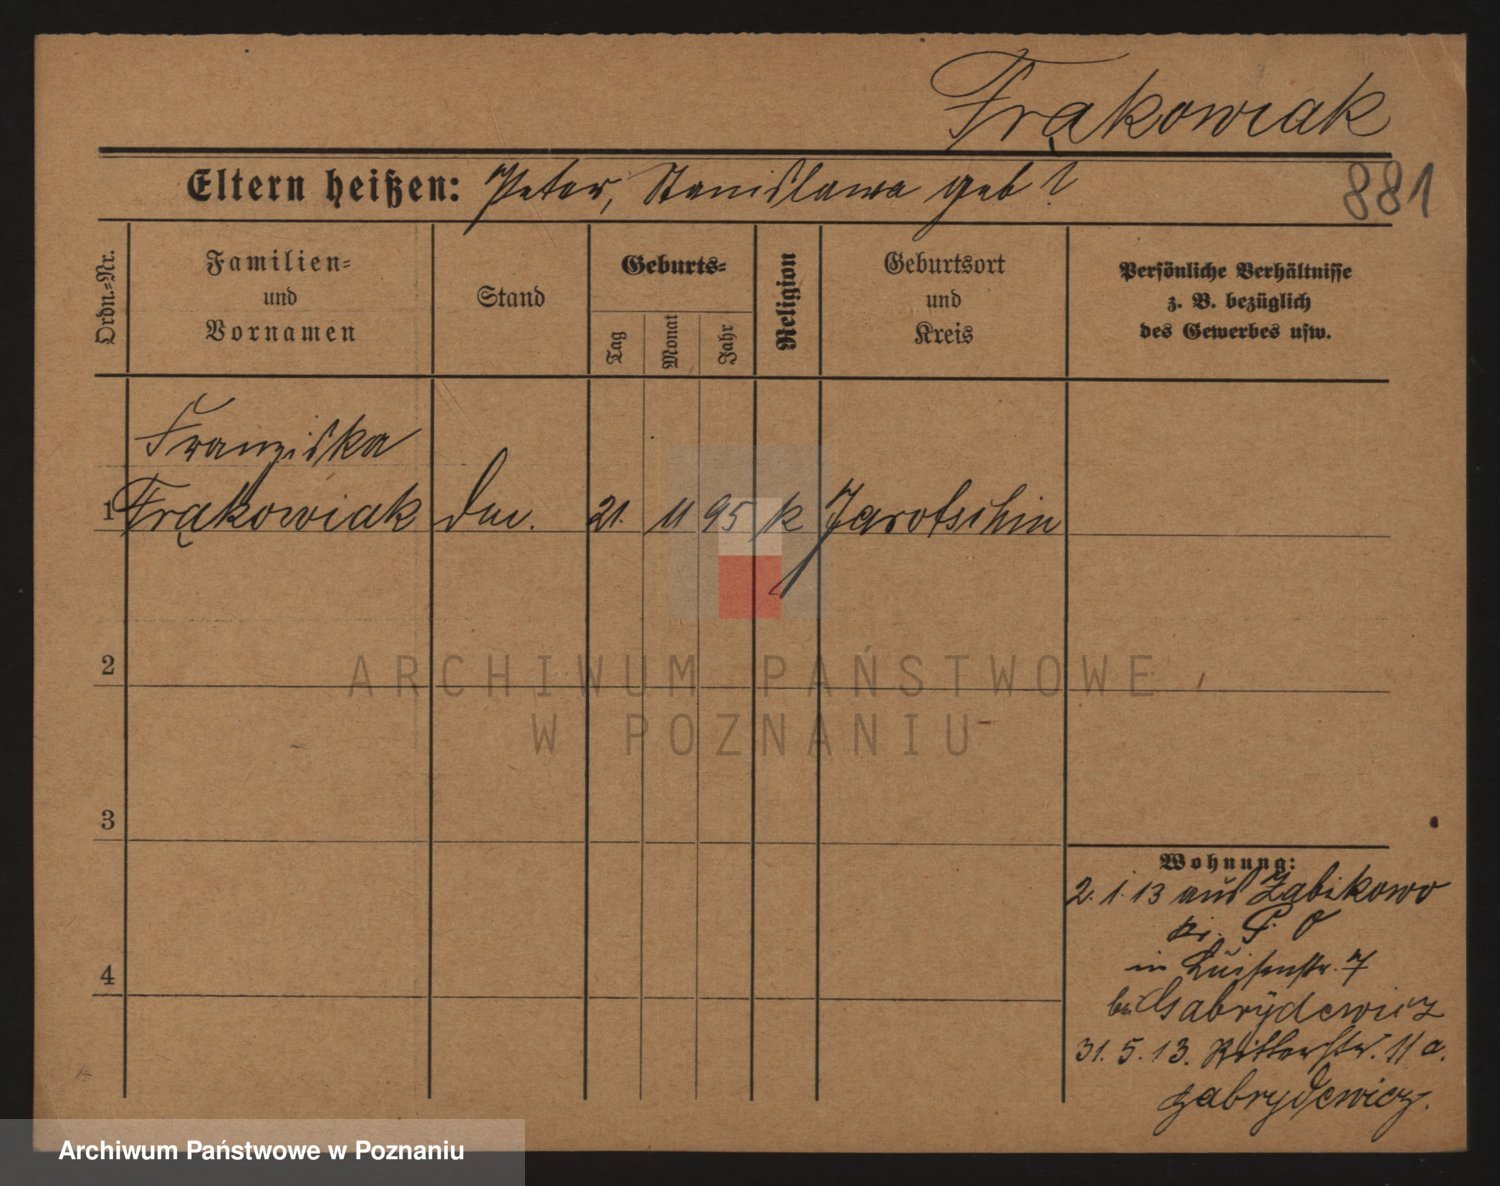 Frąkowiak
Eltern heißen: Peter, Stanislawa geb ?
881
Ordn.=Nr.
Familien=
und
Vornamen
Stand
Geburts=
Tag
Monat
Jahr
Religion
Geburtsort
und
Kreis
Persönliche Verhältnisse
z. B. bezüglich
des Gewerbes usw.
Franziska
1 Frąkowiak 21. 11 95 k Jarotschin
2
3
4
Wohnung:
2. 1. 13 aus Zabikowo
P. O
in Luisenstr. 7
bei Gabrydewicz
31. 5. 13. Ritterstr. 11 a.
Gabrydewicz.
ARCHIWUM PAŃSTWOWE
W POZNANIU
Archiwum Państwowe w Poznaniu